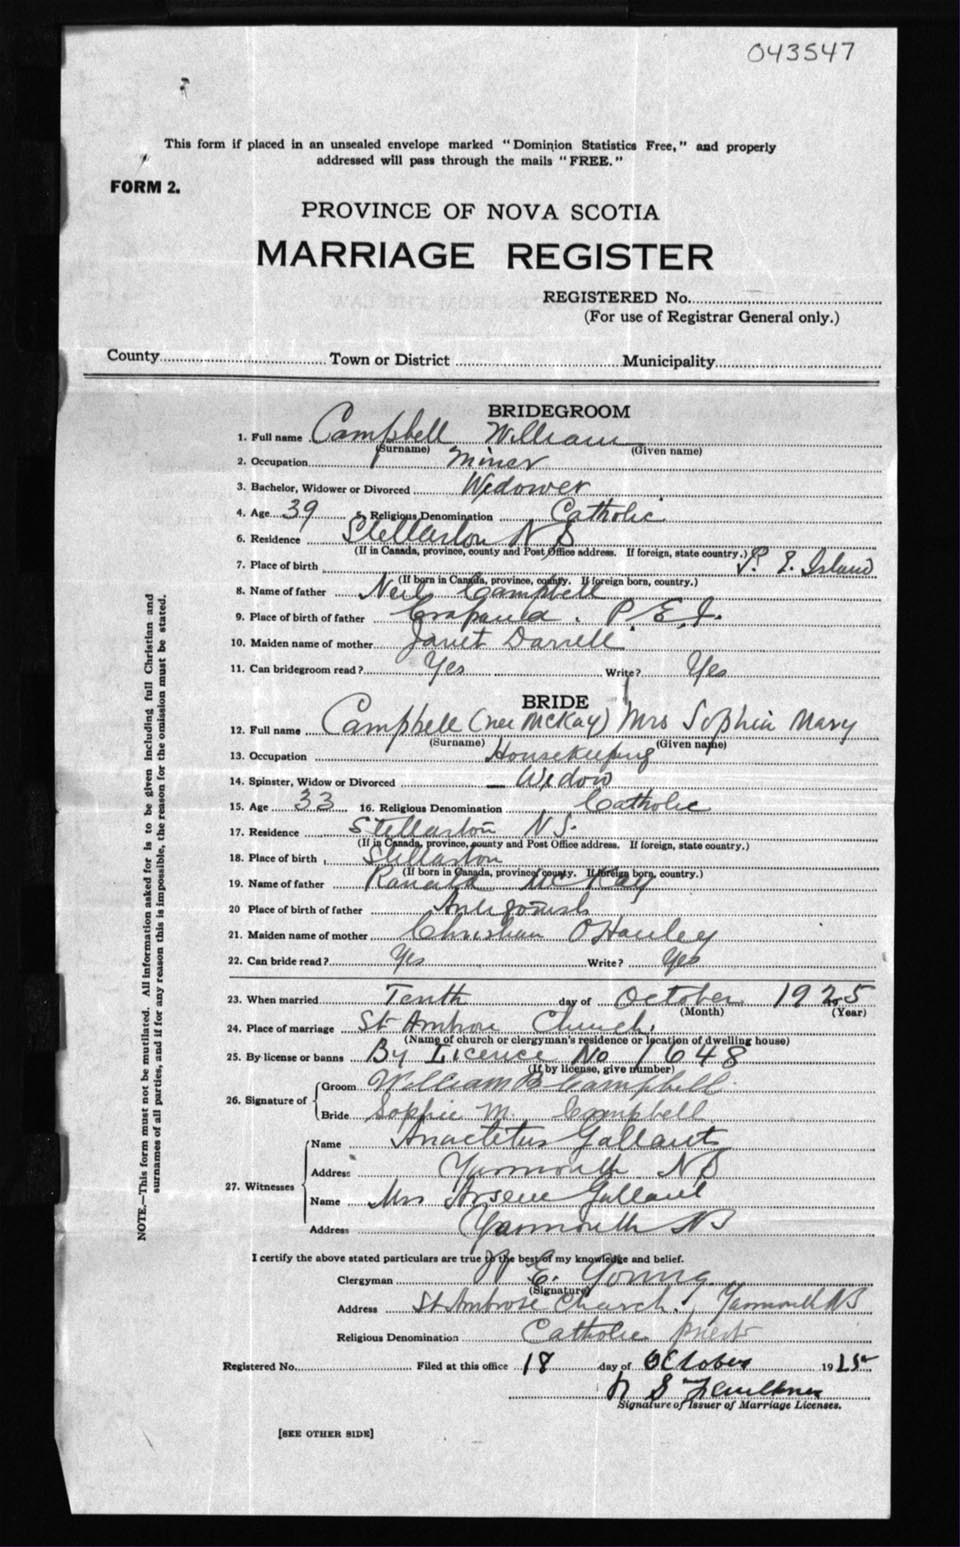 043547
This form if placed in an unsealed envelope marked "Dominion Statistics Free," and properly
addressed will pass through the mails "FREE."
FORM 2.
PROVINCE OF NOVA SCOTIA
MARRIAGE REGISTER
REGISTERED No.
(For use of Registrar General only.)
County Town or District Municipality
BRIDEGROOM
1. Full name Campbell William
(Surname) (Given name)
2. Occupation Miner
3. Bachelor, Widower or Divorced Widower
4. Age 39 5. Religious Denomination Catholic
6. Residence Stellarton N S
(If in Canada, province, county and Post Office address. If foreign, state country.)
7. Place of birth P. E. Island
(If born in Canada, province, county. If foreign born, country.)
8. Name of father Neil Campbell
9. Place of birth of father P.E.I.
10. Maiden name of mother Janet Darrell
11. Can bridegroom read? Yes Write? Yes
BRIDE
12. Full name Campbell (nee McKay) Mrs Sophia Mary
(Surname) (Given name)
13. Occupation Housekeeping
14. Spinster, Widow or Divorced Widow
15. Age 33 16. Religious Denomination Catholic
17. Residence Stellarton N S.
(If in Canada, province, county and Post Office address. If foreign, state country.)
18. Place of birth Stellarton
(If born in Canada, province, county. If foreign born, country.)
19. Name of father Ranald McKay
20 Place of birth of father Antigonish
21. Maiden name of mother O'Hanley
22. Can bride read? Yes Write? Yes
23. When married Tenth day of October 1925
(Month) (Year)
24. Place of marriage St Ambrose Church.
(Name of church or clergyman's residence or location of dwelling house)
25. By license or banns By Licence No 1648
(If by license, give number)
26. Signature of
Groom William B Campbell
Bride Sophie M. Campbell
27. Witnesses
Name Anacletus Gallant
Address Yarmouth NS
Name Mrs Arsene Gallant
Address Yarmouth NS
I certify the above stated particulars are true to the best of my knowledge and belief.
Clergyman E. Young
(Signature)
Address St Ambrose Church. Yarmouth NS
Religious Denomination Catholic priest
Registered No. Filed at this office 18 day of October 1925
N S Faulkner
Signature of Issuer of Marriage Licenses.
[SEE OTHER SIDE]
NOTE.—This form must not be mutilated. All information asked for is to be given including full Christian and
surnames of all parties, and if for any reason this is impossible, the reason for the omission must be stated.